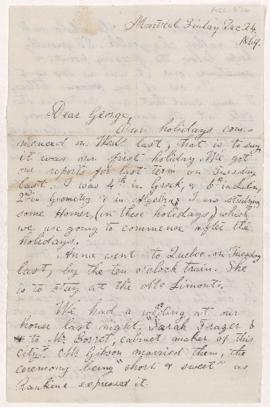 Montreal Friday Dec 24
1869.
Dear George,
Our holidays com-
menced on Wed last, that is to say
it was our first holiday. We got
our reports for last term on Tuesday
last. I was 4th in Greek, & 6th in Latin,
2nd in Geometry & in Algebra. I am studying
some Homer, (in these holidays) which
we are going to commence after the
holidays.
Anna went to Quebec on Tuesday
last, by the ten o'clock train. She
is to stay at the
We had a wedding at our
house last night, Sarah Frazer
to Mr. cabinet maker of this
city. Mr Gibson married them, the
ceremony being "short & sweet" as
Rankine expressed it.